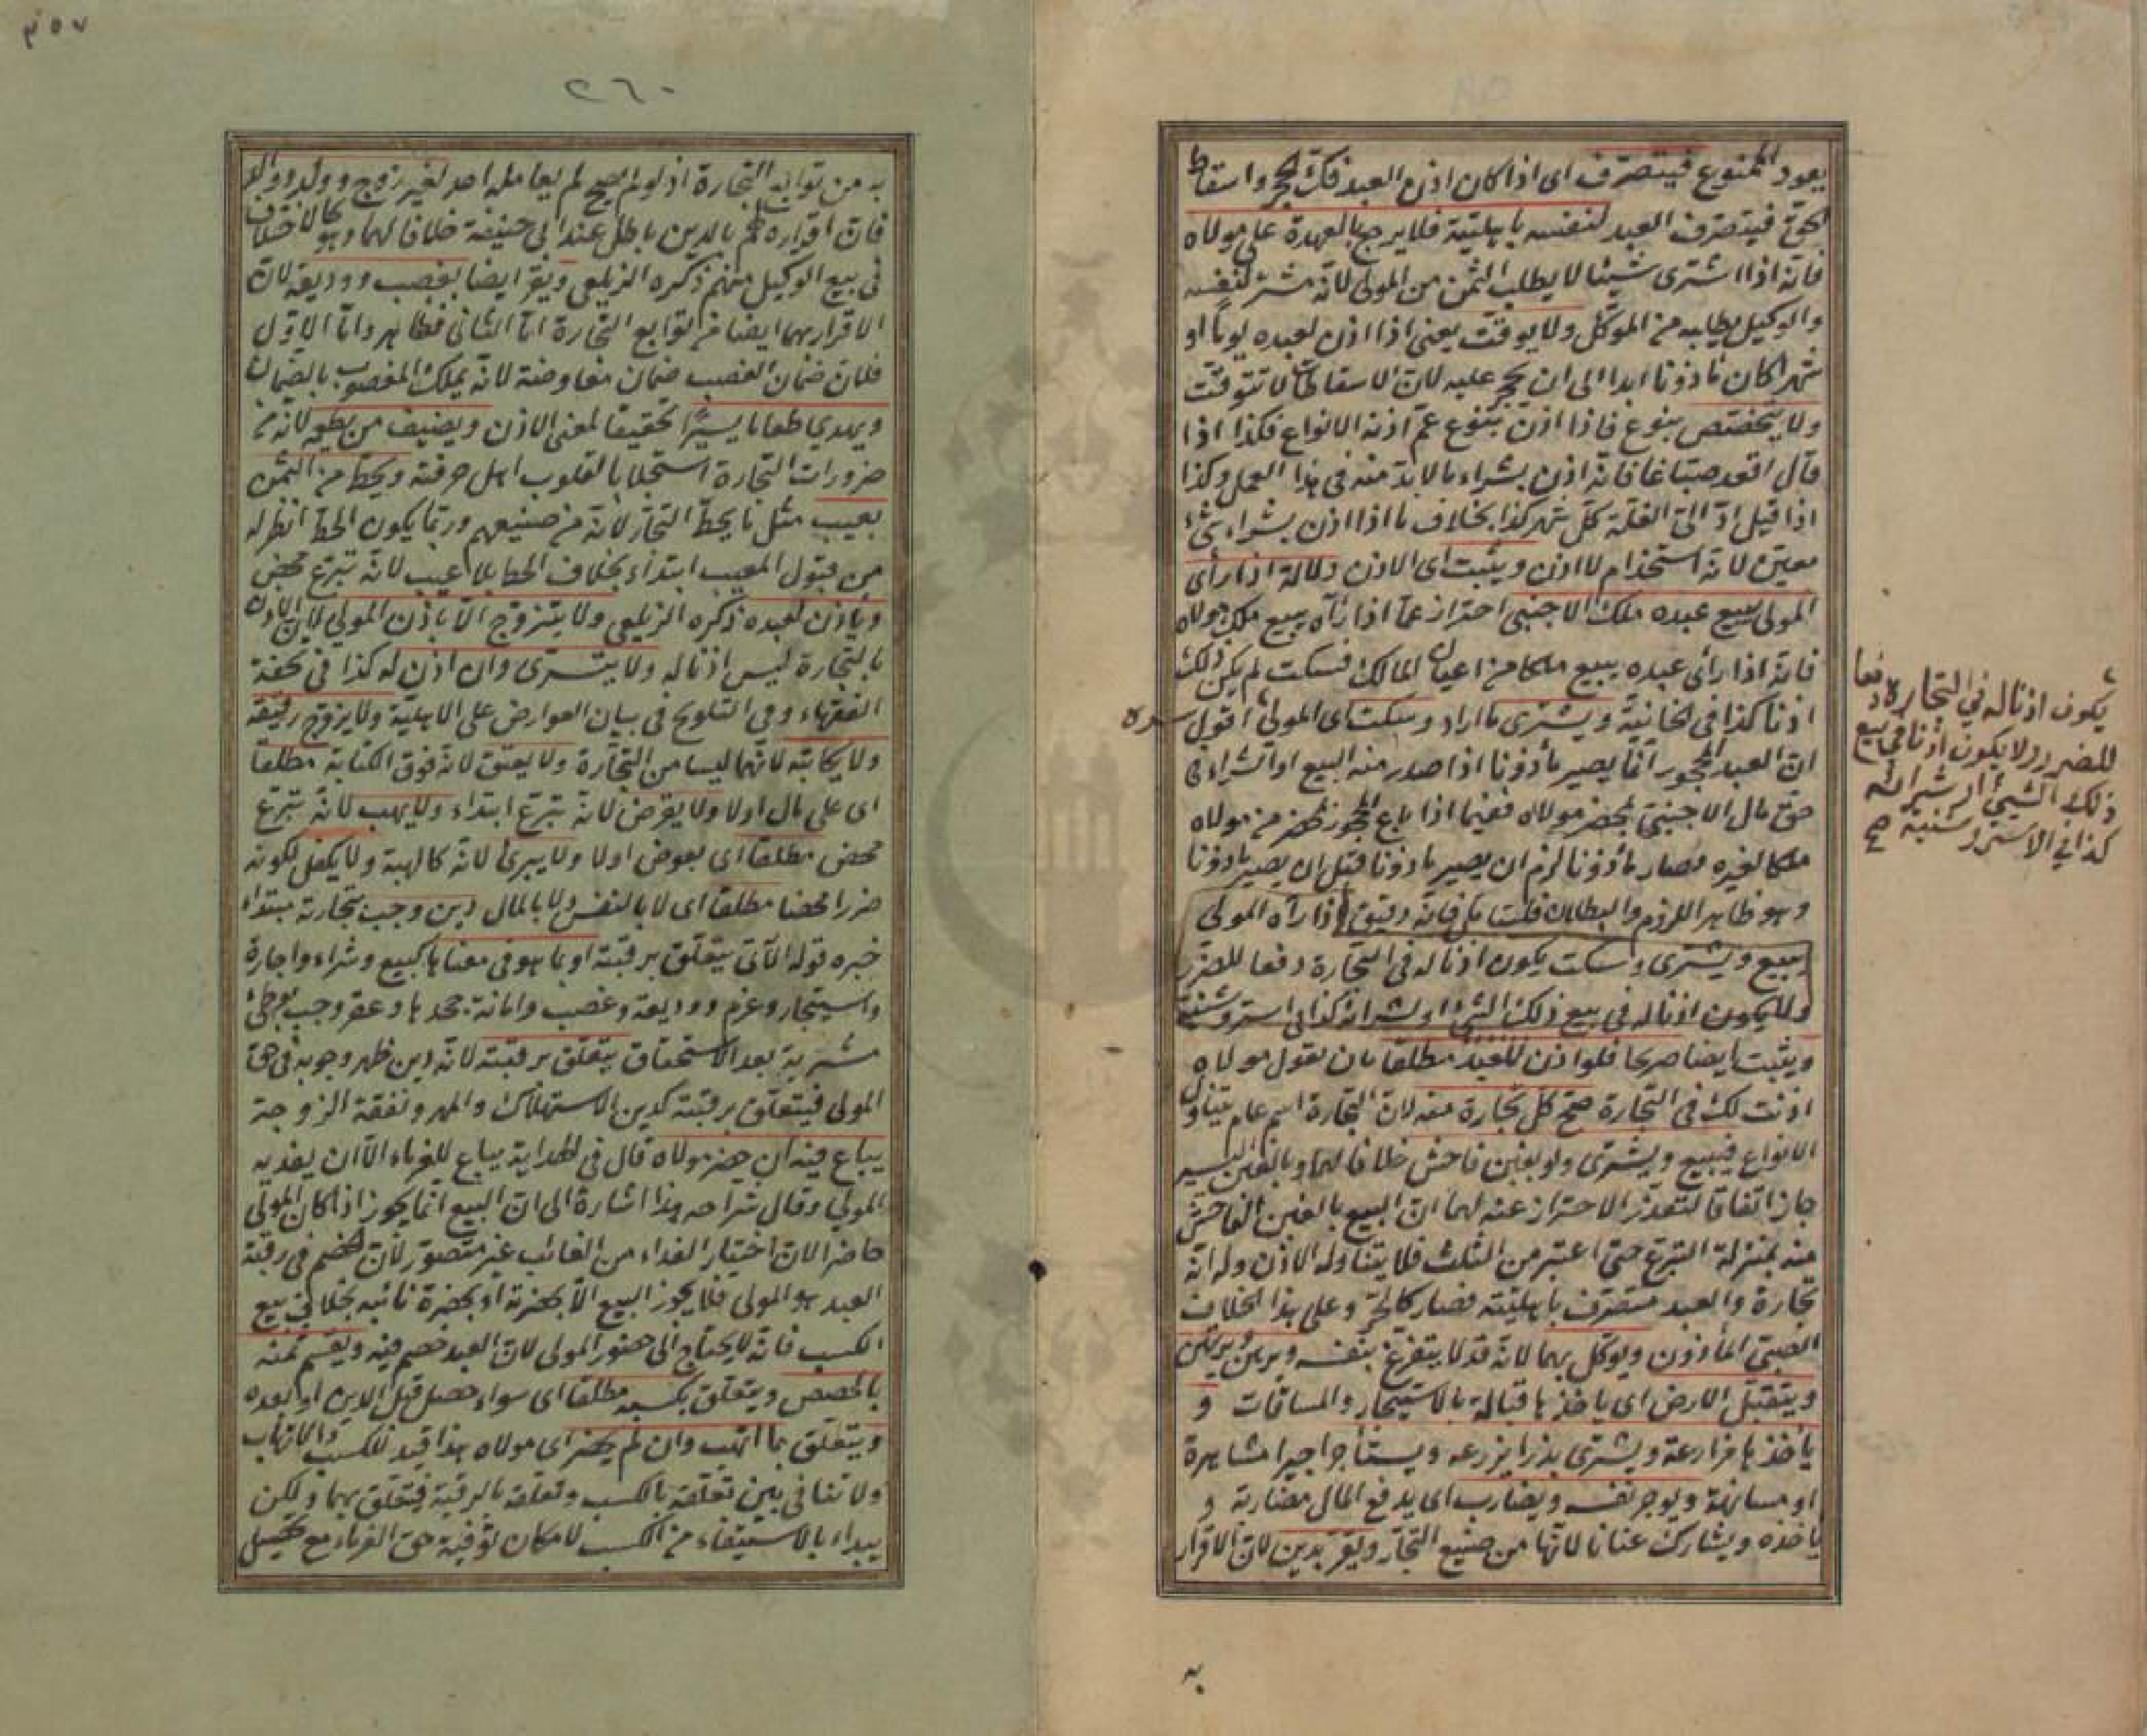 يعود الممنوع فيتصرف اى اذا كان اذن العبد فك الحجر واسقاط
الحق فيتصرف العبد لنفسه باهليته فلا يرجع بالعهدة على مولاه
فانه اذا اشترى شيئا لا يطلب الثمن من المولى لانه مشتر لنفسه
والوكيل يطلبه من الموكل ولا يوقت يعنى اذا اذن لعبده يوما او
شهرا كان مأذونا ابدا الى ان يحجر عليه لان الاسقاطات لا تتوقت
ولا يتخصص بنوع فاذا اذن بنوع عم اذنه الانواع فكذا اذا
قال اقعد صباغا فانه اذن بشراء ما لا بد منه فى هذا العمل وكذا
اذا قيل اد الى الغلة كل شهر كذا بخلاف ما اذا اذن بشراء شئ
معين لانه استخدام لا اذن ويثبت اى الاذن دلالة اذا رأى
المولى يبيع عبده ملك الاجنبى احتراز عما اذا رآه يبيع ملك مولاه
فانه اذا رأى عبده يبيع ملكا من اعيان المالك فسكت لم يكن ذلك
اذنا كذا فى الخانية ويشترى ما اراد وسكت اى المولى اقول
ان العبد المحجور انما يصير مأذونا اذا صدر منه البيع او الشراء فى
حق مال الاجنبى بمحضر مولاه ففيما اذا باع المحجور بمحضر من مولاه
ملكا لغيره فصار مأذونا لزم ان يصير مأذونا قبل ان يصير مأذونا
وهو ظاهر اللزوم والبطلان قلت تأمل فانه دقيق اذا رآه المولى
يبيع ويشترى وسكت يكون اذنا له فى التجارة دفعا للضرر
ولا يكون اذنا له فى بيع ذلك الشئ او شرائه كذا فى استروشنية
ويثبت ايضا صريحا فلو اذن للعبد مطلقا بان يقول مولاه
اذنت لك فى التجارة صح كل تجارة منه لان التجارة اسم عام يتناول
الانواع فيبيع ويشترى ولو بغبن فاحش خلافا لهما وبالغبن اليسير
جاز اتفاقا لتعذر الاحتراز عنه لهما ان البيع بالغبن الفاحش
منه بمنزلة التبرع حتى اعتبر من الثلث فلا يتناوله الاذن وله انه
تجارة والعبد متصرف باهليته فصار كالحر وعلى هذا الخلاف
الصبى المأذون ويوكل بهما لانه قد لا يتفرغ بنفسه ويرهن ويرتهن
ويتقبل الارض اى ياخذها قبالة بالاستيجار والمساقات و
يأخذها مزارعة ويشترى بذرا يزرعه ويستأجر اجيرا مشاهرة
او مسانهة ويوجر نفسه ويضارب اى يدفع المال مضاربة و
ياخذه ويشارك عنانا لانها من صنيع التجار ويقر بدين لان الاقرار
به
سده
يكون اذنا له فى التجارة دفعا
للضرر ولا يكون اذنا فى بيع
ذلك الشئ او شرائه
كذا فى الاستروشنية صح
٣٥٧
٢٦٠
به من توابع التجارة اذ لو لم يصح لم يعامله احد لغير زوج وولد ووالد
فان اقراره لهم بالدين باطل عند ابى حنيفة خلافا لهما وهو كالاختلاف
فى بيع الوكيل منهم ذكره الزيلعى ويقر ايضا بغصب ووديعة لان
الاقرار بهما ايضا من توابع التجارة اما الثانى فظاهر واما الاول
فلان ضمان الغصب ضمان معاوضة لانه يملك المغصوب بالضمان
ويهدى طعاما يسيرا تحقيقا لمعنى الاذن ويضيف من يطعمه لانه من
ضرورات التجارة استجلابا لقلوب اهل حرفته ويحط من الثمن
بعيب مثل ما يحط التجار لانه من صنيعهم وربما يكون الحط انظر له
من قبول المعيب ابتداء بخلاف الحط بلا عيب لانه تبرع محض
ويأذن لعبده ذكره الزيلعى ولا يتزوج الا باذن المولى لان الاذن
بالتجارة ليس اذنا له ولا يتسرى وان اذن له كذا فى تحفة
الفقهاء وفى التلويح فى بيان العوارض على الاهلية ولا يزوج رقيقه
ولا يكاتبه لانهما ليسا من التجارة ولا يعتق لانه فوق الكتابة مطلقا
اى على مال اولا ولا يقرض لانه تبرع ابتداء ولا يهب لانه تبرع
محض مطلقا اى بعوض اولا ولا يبرئ لانه كالهبة ولا يكفل لكونه
ضررا محضا مطلقا اى لا بالنفس ولا بالمال دين وجب بتجارته مبتداء
خبره قوله الآتى يتعلق برقبته او بما هو فى معناها كبيع وشراء واجارة
واستيجار وغرم ووديعة وغصب وامانة جحدها وعقر وجب بوطئ
مشرية بعد الاستحقاق يتعلق برقبته لانه دين ظهر وجوبه فى حق
المولى فيتعلق برقبته كدين الاستهلاك والمهر ونفقة الزوجة
يباع فيه ان حضر مولاه قال فى الهداية يباع للغرماء الا ان يفديه
المولى وقال شراحه هذا اشارة الى ان البيع انما يجوز اذا كان المولى
حاضرا لان اختيار الفداء من الغائب غير متصور لان الخصم فى رقبة
العبد هو المولى فلا يجوز البيع الا بحضرته او بحضرة نائبه بخلاف بيع
الكسب فانه لا يحتاج الى حضور المولى لان العبد خصم فيه ويقسم ثمنه
بالحصص ويتعلق بكسبه مطلقا اى سواء حصل قبل الدين او بعده
ويتعلق بما اتهب وان لم يحضر اى مولاه هذا قيد للكسب والاتهاب
ولا تنافى بين تعلقه بالكسب وتعلقه بالرقبة فيتعلق بهما ولكن
يبداء بالاستيفاء من الكسب لامكان توفية حق الغرماء مع تحصيل